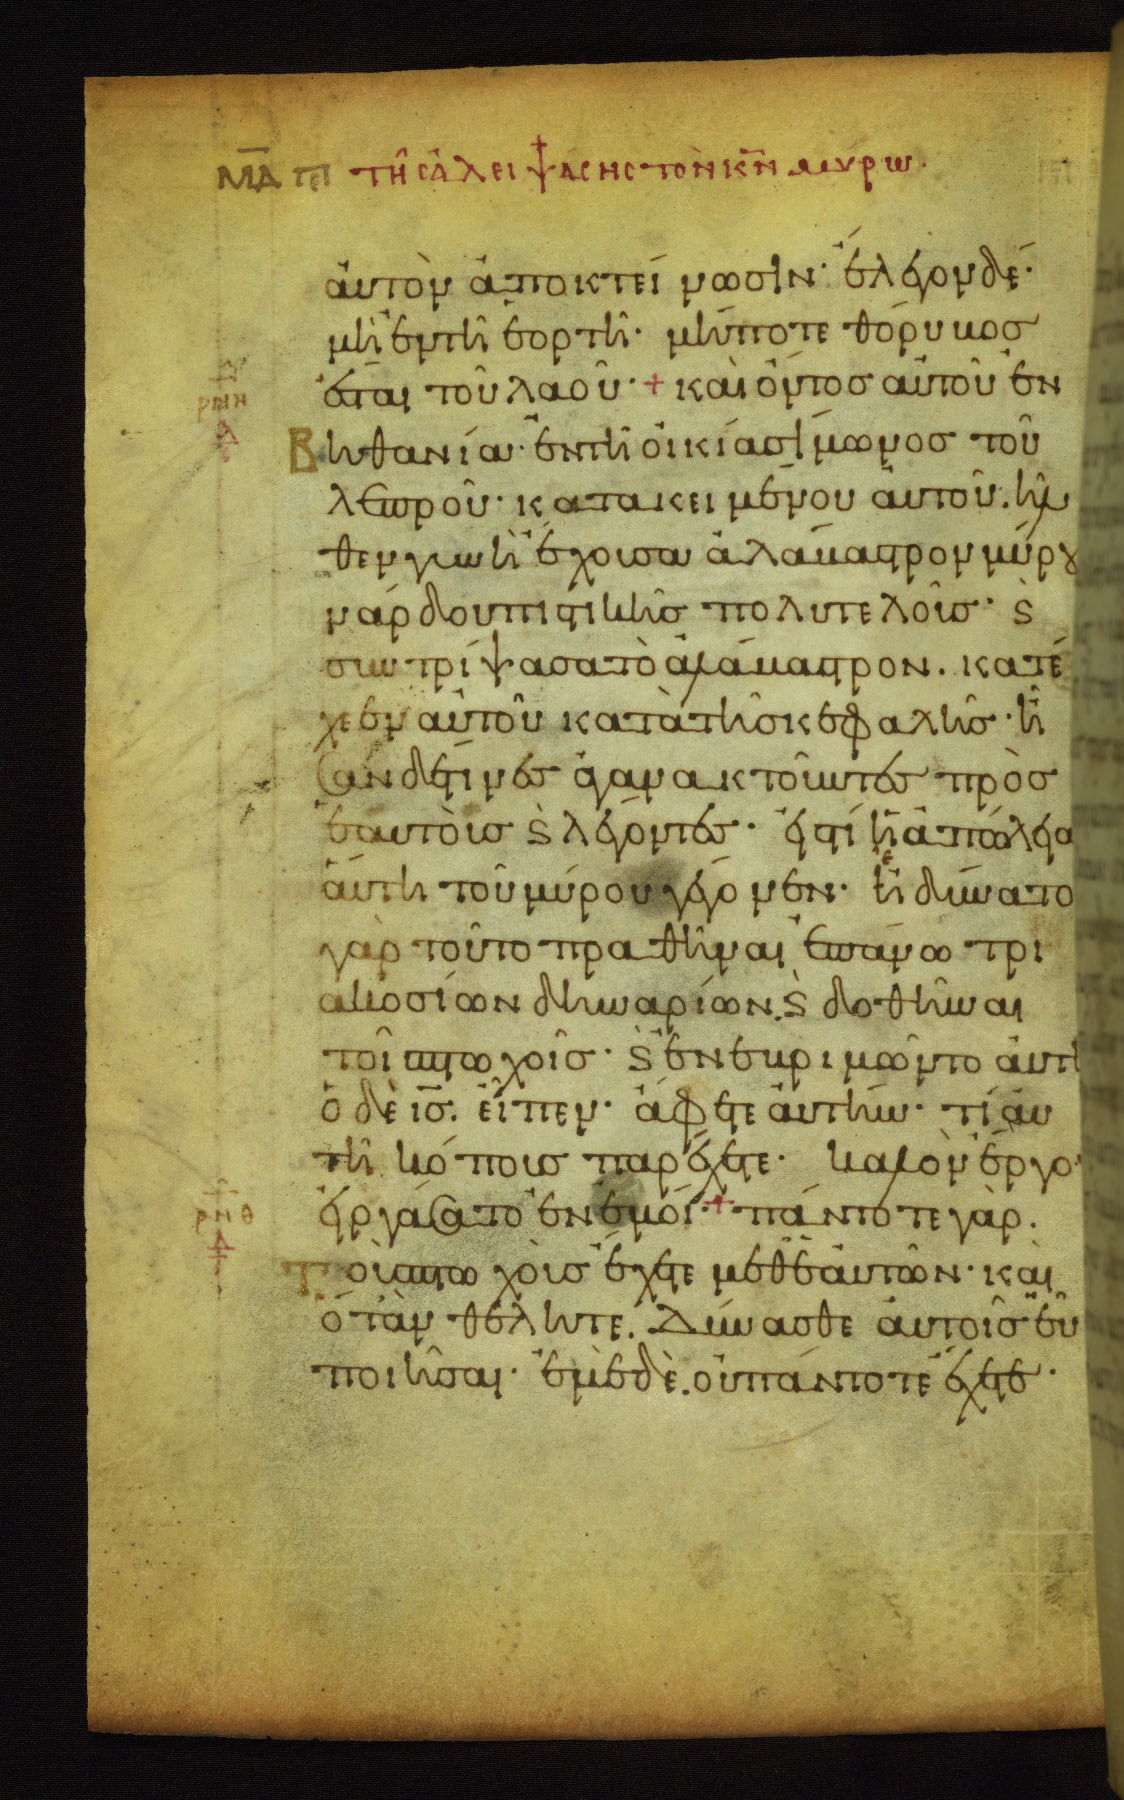 ΜΔ πε τῆς ἀλειψάσης τὸν κν μύρω·
αὐτὸν ἀποκτείνωσιν· ἔλεγον δέ·
μὴ ἐν τῆ ἑορτῆ· μήποτε θόρυβος
ἔσται τοῦ λαοῦ· + καὶ ὄντος αὐτοῦ ἐν
ρνη
Δ
Βηθανία· ἐν τῆ οἰκία σίμωνος τοῦ
λεπροῦ· κατακειμένου αὐτοῦ. ἦλ
θεν γυνὴ ἔχουσα ἀλάβαστρον μύρου
νάρδου πιστικῆς πολυτελοῦς· καὶ
συντρίψασα τὸ ἀλάβαστρον. κατέ
χεεν αὐτοῦ κατὰ τῆς κεφαλῆς· ἦ
σαν δέ τινες ἀγανακτοῦντες πρὸς
ἑαυτοὺς καὶ λέγοντες· εἰς τί ἡ ἀπώλεια
αὕτη τοῦ μύρου γέγονεν· ἠδύνατο
γὰρ τοῦτο πραθῆναι ἐπάνω τρι
ακοσίων δηναρίων. καὶ δοθῆναι
τοῖς πτωχοῖς· καὶ ἐνεβριμῶντο αὐτῆ
ὁ δὲ ις. εἶπεν· ἄφετε αὐτήν· τί αὐ
τῆ κόπους παρέχετε· καλὸν ἔργον
εἰργάσατο ἐν ἐμοί· + πάντοτε γὰρ.
ρνθ
Δ
Τοὺς πτωχοὺς ἔχετε μεθ ἑαυτῶν· καὶ
ὅταν θέλητε. Δύνασθε αὐτοῖς εὖ
ποιῆσαι· ἐμὲ δὲ. οὐ πάντοτε ἔχετε·